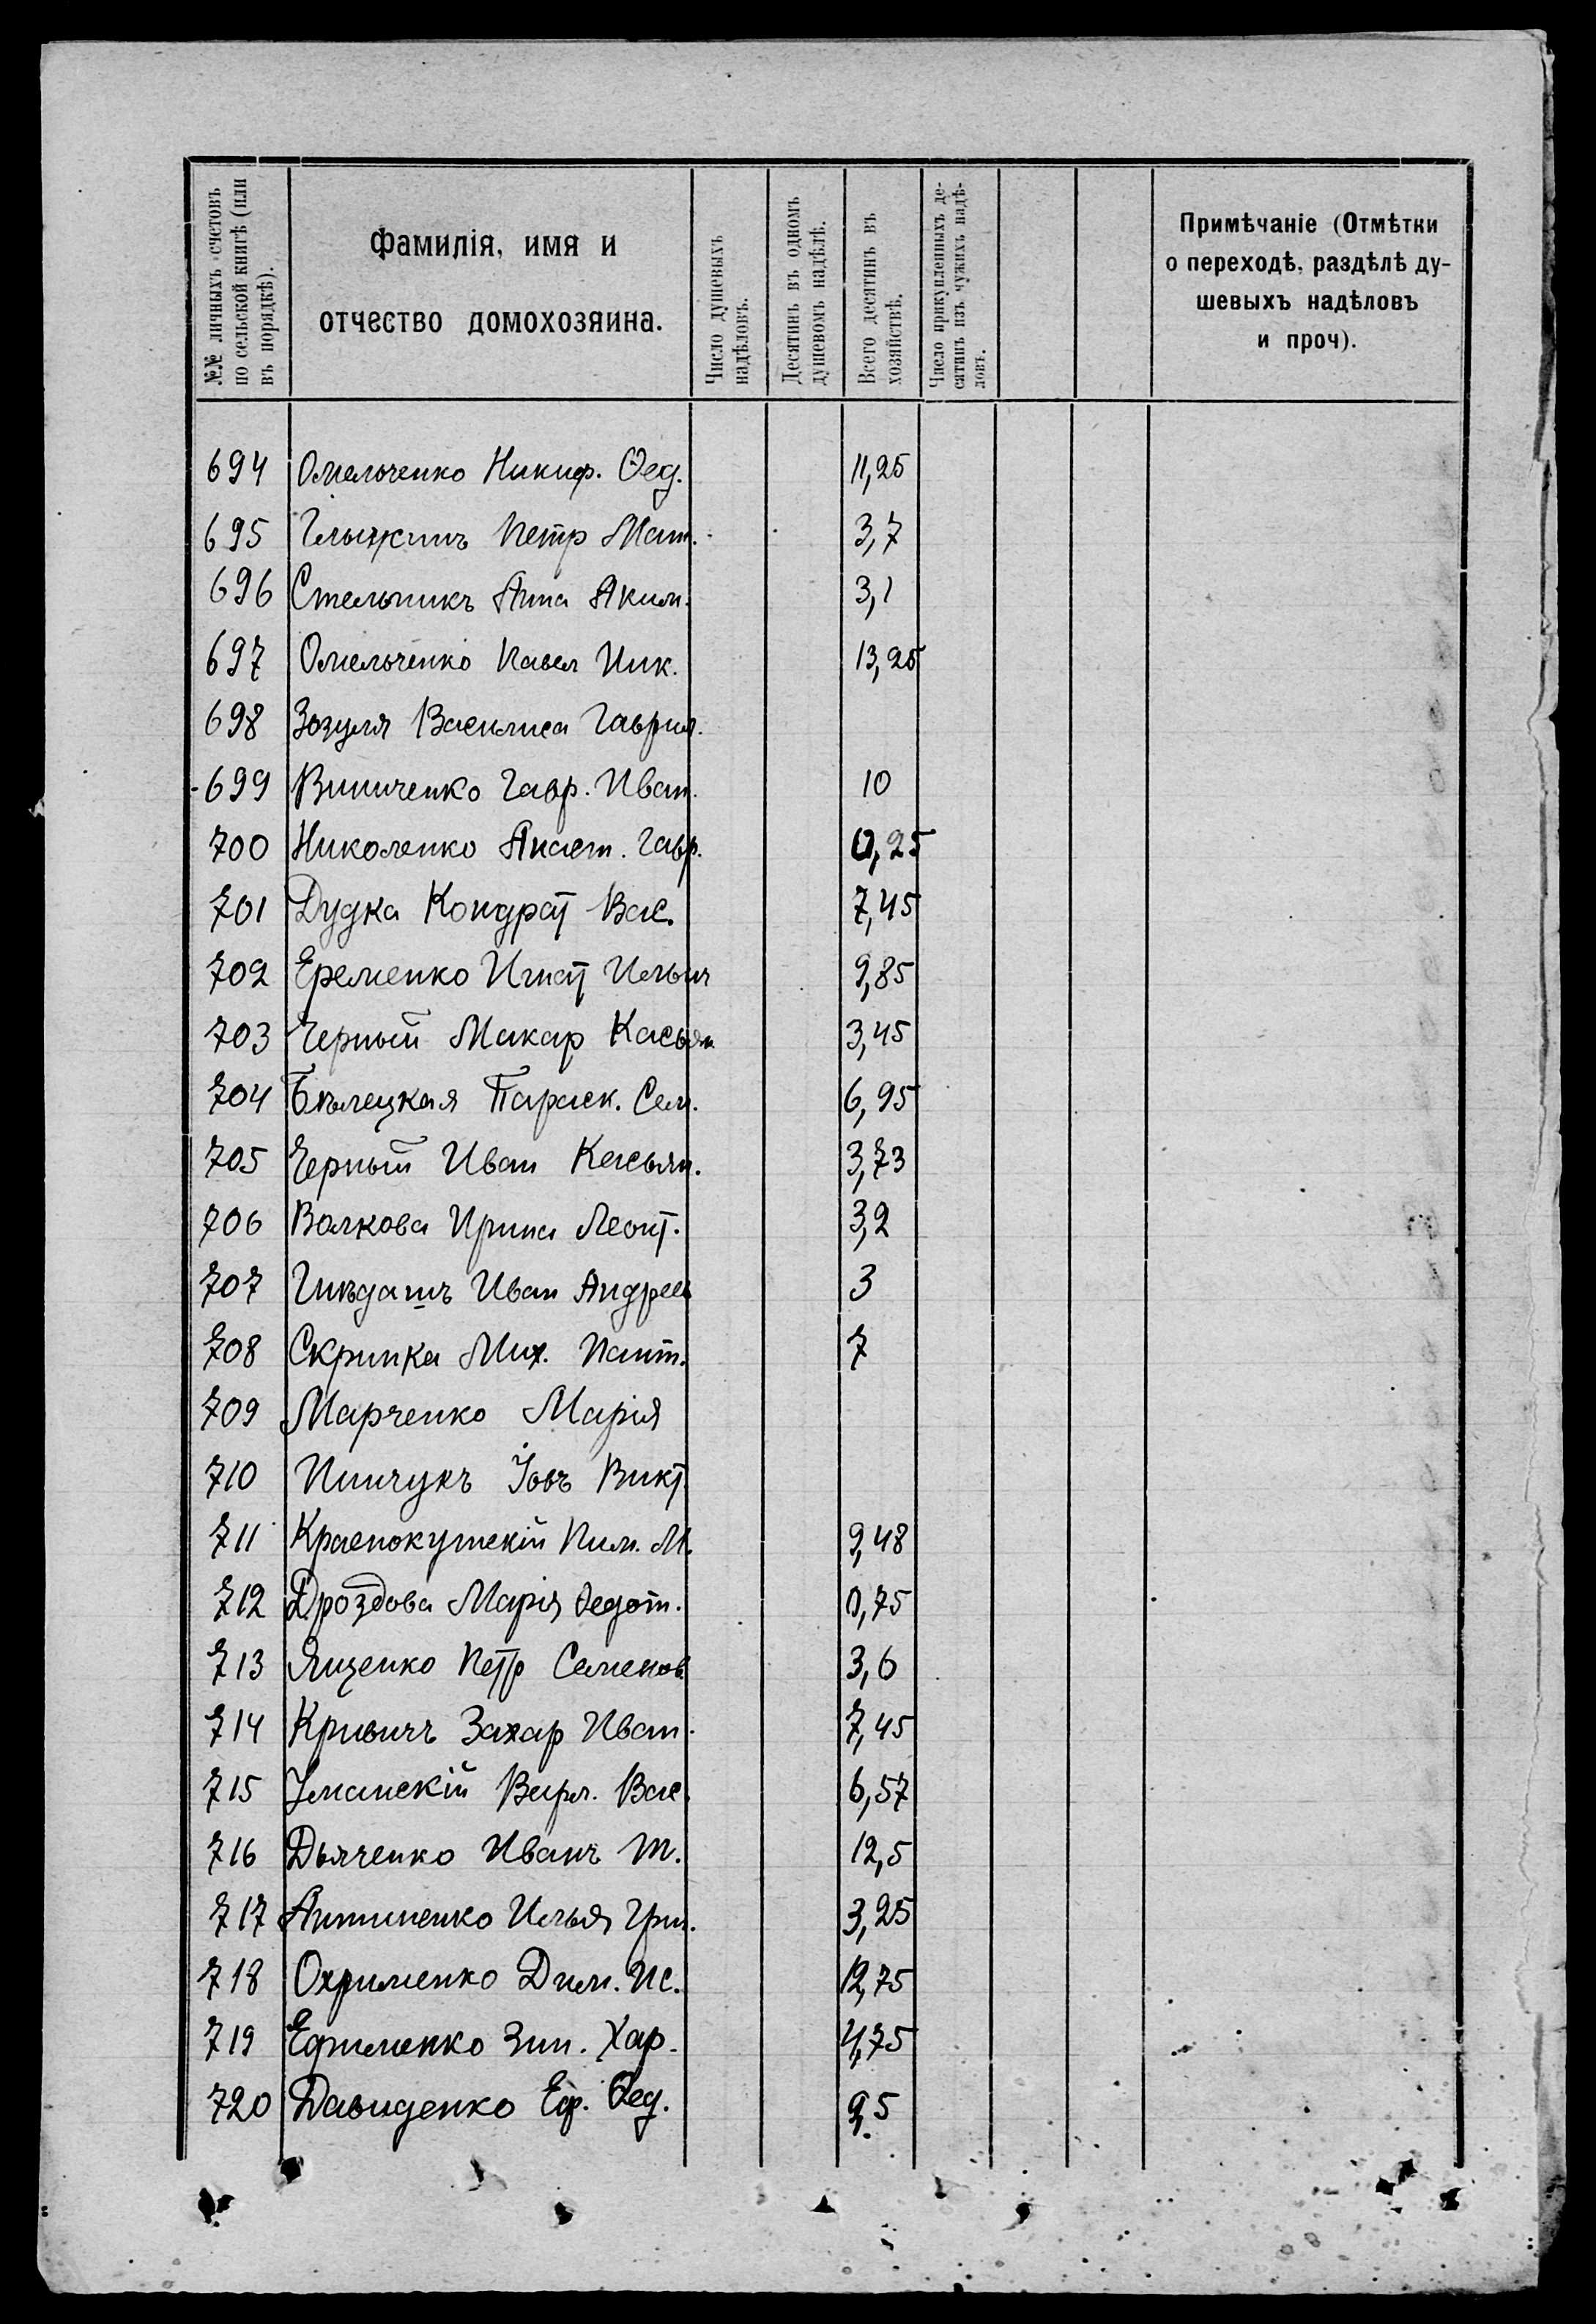 №№ личныхъ счетовъ
по сельской книгѣ (или
въ порядкѣ).
Фамилія, имя и
отчество домохозяина.
Число душевыхъ
надѣловъ.
Десятинъ въ одномъ
душевомъ надѣлѣ.
Всего десятинъ въ
хозяйствѣ.
Число прикупленныхъ де-
сятинъ изъ чужихъ надѣ-
ловъ.
Примѣчаніе (Отмѣтки
о переходѣ, раздѣлѣ ду-
шевыхъ надѣловъ
и проч).
694 Омельченко Никиф. Ѳед. 11,25
695 Петр Мат. 3,7
696 Стельникъ Анна Аким. 3,1
697 Омельченко Павел Ник. 13,25
698 Зозуля Василиса Гаврил.
699 Виниченко Гавр. Иван. 10
700 Николенко Анаст. Гавр. 0,25
701 Дудка Кондрат Вас. 7,45
702 Еременко Игнат Ильич 9,85
703 Черный Макар Касьян 3,45
704 Бѣлецкая Параск. Сем. 6,95
705 Черный Иван Касьян. 3,73
706 Волкова Ирина Леонт. 3,2
707 Гнѣдашъ Иван Андреев 3
708 Скрипка Мих. Пант. 7
709 Марченко Марія
710 Пинчукъ Іовъ Викт.
711 Краснокутскій Пим. М. 9,48
712 Дроздова Марія Федот. 0,75
713 Яценко Петр Семенов 3,6
714 Кривичъ Захар Иван. 7,45
715 Уманскій Варл. Вас. 6,57
716 Дьяченко Иванъ Т. 12,5
717 Антипенко Илья Гри. 3,25
718 Охрименко Дим. Ис. 12,75
719 Ефименко Зин. Хар. 4,75
720 Давиденко Еф. Ѳед. 9,5